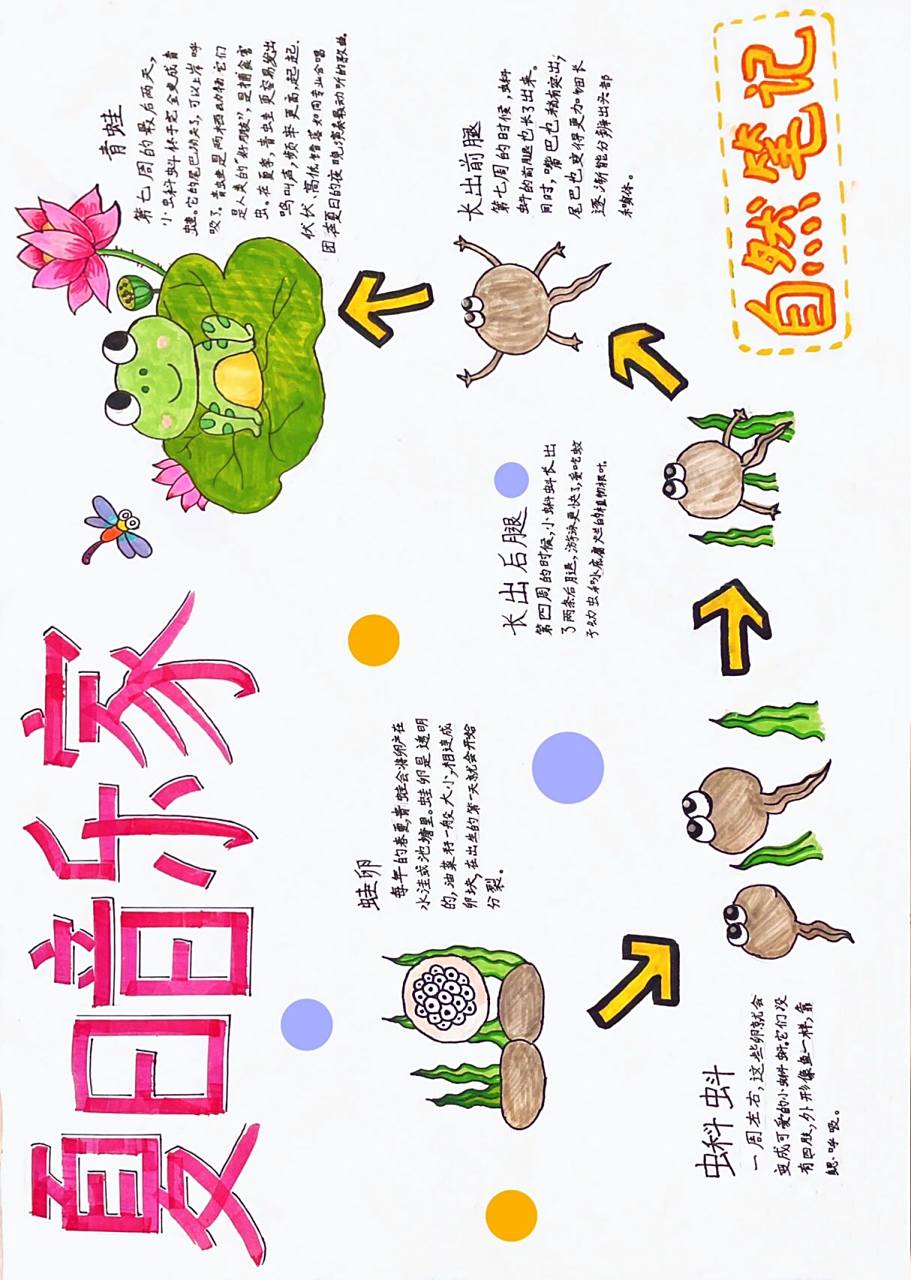 夏日音乐家
自然笔记
蛙卵
每年的春夏,青蛙会将卵产在
水洼或池塘里。蛙卵是透明
的,油菜籽一般大小,相连成
卵块,在出生的第一天就会开始
分裂。
蝌蚪
一周左右,这些卵就会
变成可爱的小蝌蚪。它们没
有四肢,外形像鱼一样,靠
鳃呼吸。
长出后腿
第四周的时候,小蝌蚪长出
了两条后腿,游泳更快了,爱吃蚊
子幼虫和水底腐烂的植物根叶。
长出前腿
第七周的时候,蝌
蚪的前腿也长了出来。
同时,嘴巴也稍有突出,
尾巴也变得更加细长
逐渐能分辨出头部
和躯体。
青蛙
第七周的最后两天,
小蝌蚪终于它全变成青
蛙。它的尾巴功夫了,可以上岸呼
吸了。青蛙是两栖动物它们
是人类的“好朋友”,是捕食害
虫。在夏季,青蛙更容易发出
鸣叫声,频率更高,起起
伏伏、高低错落如同专业合唱
团在夏日的夜晚演奏最动听的歌曲。